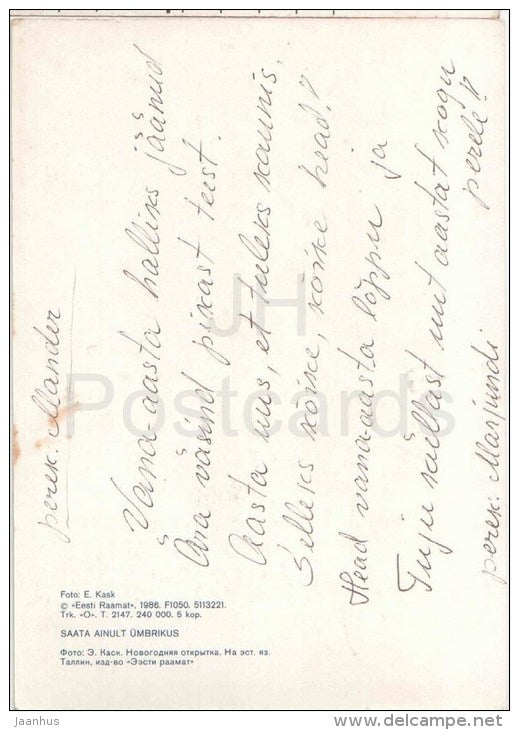 perek. Mander
Vana-aasta halliks jäänud
Ära väsind pikast teest.
Aasta uus, et tuleks kaunis,
Selleks kõike, kõike head!!
Head vana-aasta lõppu ja
Tuju küllast uut aastat kogu
perele!!
perek. Marjundi
Foto: E. Kask
© «Eesti Raamat», 1986. F1050. 5113221.
Trk. «O». T. 2147. 240 000. 5 kop.
SAATA AINULT ÜMBRIKUS
Фото: Э. Каск. Новогодняя открытка. На эст. яз.
Таллин, изд-во «Ээсти раамат»
JH
Postcards
jaanhus
www.delcampe.net